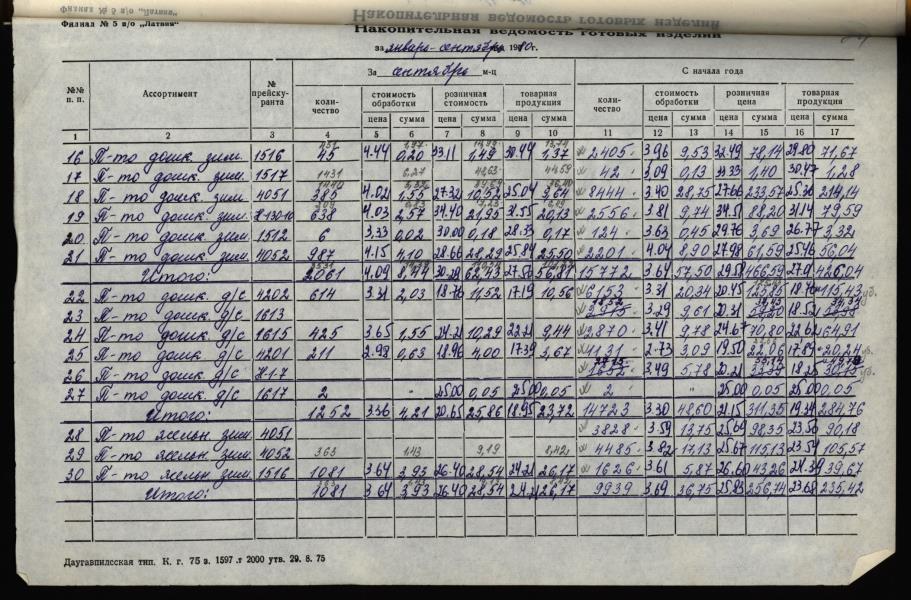 Филиал № 5 п/о „Латвия"
Филиал № 5 п/о „Латвия"
Накопительная ведомость готовых изделий
за январь-сентябрь 1980г.
№№ п. п. Ассортимент № прейску-ранта За сентябрь м-ц С начала года
коли-чество стоимость обработки розничная стоимость товарная продукция количество стоимость обработки розничная цена товарная продукция
цена сумма цена сумма цена сумма цена сумма цена сумма цена сумма
1 2 3 4 5 6 7 8 9 10 11 12 13 14 15 16 17
16 П-то дошк. зим. 1516 45 4.44 0,20 33.11 1,49 30.44 1,37 2405 3.96 9,53 32.49 78,14 29.80 71,67
17 П-то дошк. зим. 1517 1431 6,27 42 3.09 0,13 33.33 1,40 30.47 1,28
18 П-то дошк. зим. 4051 385 4.02 1,55 27.32 10,52 25.04 9,64 8444 3.40 28,75 27.66 233,57 25.36 214,14
19 П-то дошк. зим. 638 4.03 2,57 34.40 21,95 31.55 20,13 2556 3.81 9,74 34.51 88,20 31.14 79,59
20 П-то дошк. зим. 1512 6 3,33 0,02 30.00 0,18 28.33 0,17 124 3.63 0,45 29.76 3,69 26.77 3,32
21 П-то дошк. зим. 4052 987 4.15 4,10 28.66 28,29 25.84 25,50 2201 4.04 8,90 27.98 61,59 25.46 56,04
Итого: 2061 4.09 8,44 62,43 56,81 15772 3.64 57,50 29.58 466,59 426,04
22 П-то дошк. д/с 4202 614 3.31 2,03 18.76 11,52 17.19 10,56 6153 3.31 20,34 20.45 18.76 115,43
23 П-то дошк. д/с 1613 3.29 9,61 20.31 18.52
24 П-то дошк. д/с 1615 425 3.65 1,55 24.21 10,29 22.21 9,44 2870 3.41 9,78 24.67 70,80 22.62 64,91
25 П-то дошк. д/с 4201 211 2.98 0,63 18.96 4,00 17.39 3,67 1131 2.73 3,09 19.50 22,06 17.89 20,24
26 П-то дошк. д/с Н-17 3.49 5,78 20.21 18.25
27 П-то дошк. д/с 1617 2 " 25.00 0,05 25.00 0,05 2 " 25.00 0,05 25.00 0,05
Итого: 1252 3.36 4,21 20.65 25,86 18.95 23,72 14723 3.30 48,60 21.15 311,35 19.34 284,76
28 П-то ясельн. зим. 4051 3828 3.59 13,75 25.69 98,35 23.56 90,18
29 П-то ясельн. зим. 4052 363 1,43 9,19 8,42 4485 3.82 17,13 25.67 115,13 23.54 105,57
30 П-то ясельн. зим. 1516 1081 3.64 3,93 26.40 28,54 24.21 26,17 1626 3.61 5,87 26.60 43,26 24.39 39,67
Итого: 1081 3.64 3,93 26.40 28,54 24.21 26,17 9939 3.69 36,75 25.83 256,74 23.68 235,42
Даугавпилсская тип. К. г. 75 з. 1597 .т 2000 утв. 29. 8. 75